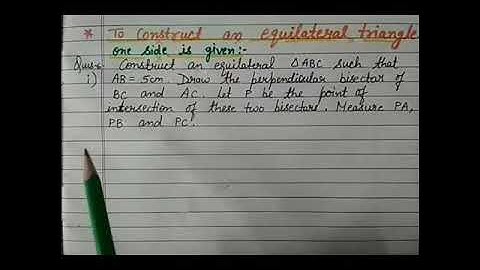 * To Construct an equilateral triangle
one side is given:-
Ques:- Construct an equilateral ΔABC such that
i) AB = 5cm. Draw the perpendicular bisector of
BC and AC. Let P be the point of
intersection of these two bisectors. Measure PA,
PB and PC.